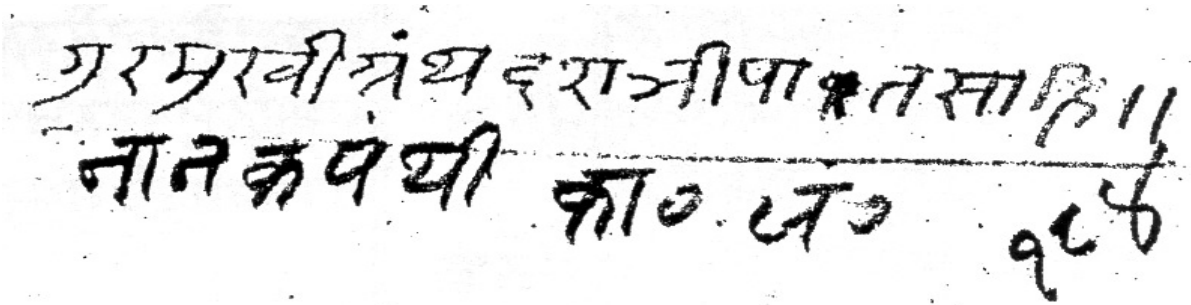 गुरमुखी ग्रंथ दशमी पातसाहि ॥
नानक पंथी का० खं०